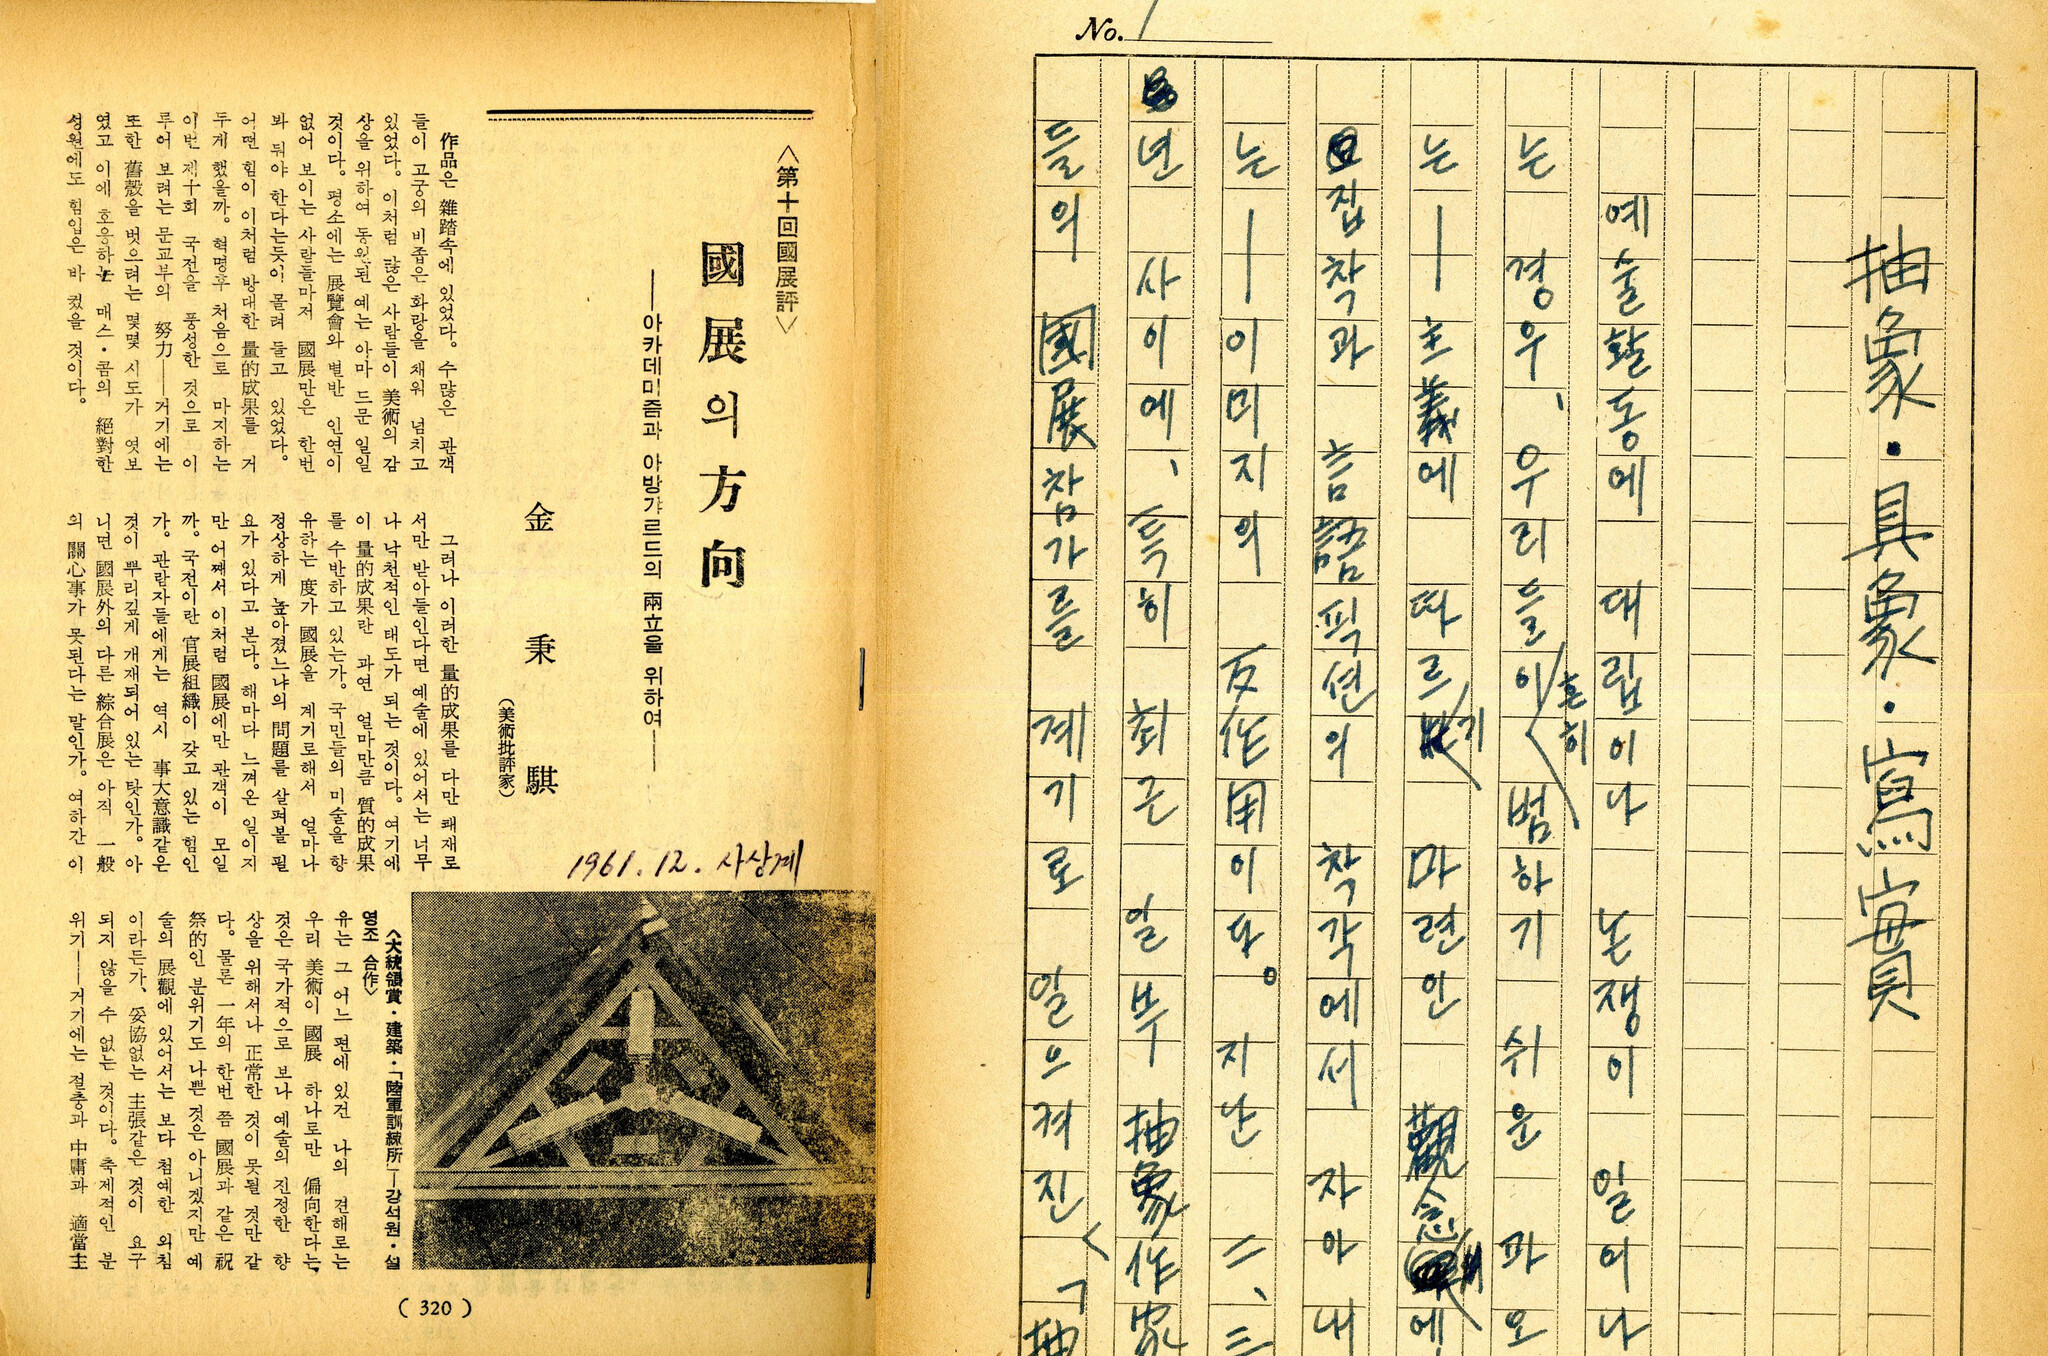 〈第十回國展評〉
國展의 方向
──아카데미즘과 아방가르드의 兩立을 위하여──
金秉騏
(美術批評家)
1961. 12. 사상계
作品은 雜踏속에 있었다. 수많은 관객
들이 고궁의 비좁은 화랑을 채워 넘치고
있었다. 이처럼 많은 사람들이 美術의 감
상을 위하여 동원된 예는 아마 드문 일일
것이다. 평소에는 展覽會와 별반 인연이
없어 보이는 사람들마저 國展만은 한번
봐 둬야 한다는듯이 몰려 들고 있었다.
어떤 힘이 이처럼 방대한 量的成果를 거
두게 했을까. 혁명후 처음으로 마지하는
이번 제十회 국전을 풍성한 것으로 이
루어 보려는 문교부의 努力──거기에는
또한 舊殼을 벗으려는 몇몇 시도가 엿보
였고 이에 호응하는 매스·콤의 絕對한
성원에도 힘입은 바 컸을 것이다.
그러나 이러한 量的成果를 다만 쾌재로
서만 받아들인다면 예술에 있어서는 너무
나 낙천적인 태도가 되는 것이다. 여기에
이 量的成果란 과연 얼마만큼 質的成果
를 수반하고 있는가. 국민들의 미술을 향
유하는 度가 國展을 계기로해서 얼마나
정상하게 높아졌느냐의 問題를 살펴볼 필
요가 있다고 본다. 해마다 느껴온 일이지
만 어째서 이처럼 國展에만 관객이 모일
까. 국전이란 官展組織이 갖고 있는 힘인
가. 관람자들에게는 역시 事大意識같은
것이 뿌리깊게 개재되어 있는 탓인가. 아
니면 國展外의 다른 綜合展은 아직 一般
의 關心事가 못된다는 말인가. 여하간 이
〈大統領賞·建築·「陸軍訓練所」──강석원·설
영조 合作〉
유는 그 어느 편에 있건 나의 견해로는
우리 美術이 國展 하나로만 偏向한다는
것은 국가적으로 보나 예술의 진정한 향
상을 위해서나 正常한 것이 못될 것만 같
다. 물론 一年의 한번 쯤 國展과 같은 祝
祭的인 분위기도 나쁜 것은 아니겠지만 예
술의 展觀에 있어서는 보다 첨예한 외침
이라든가, 妥協없는 主張같은 것이 요구
되지 않을 수 없는 것이다. 축제적인 분
위기──거기에는 절충과 中庸과 適當主
( 320 )
No. 1
抽象·具象·寫實
예술활동에 대립이나 논쟁이 일어나
는 경우, 우리들이 흔히 범하기 쉬운 과오
는── 主義에 따르기 마련인 觀念에
집착과 言語픽션의 착각에서 자아내
는──이미지의 反作用이다. 지난 二、三
년 사이에, 특히 최근 일부 抽象作家
들의 國展참가를 계기로 일으켜진 「抽